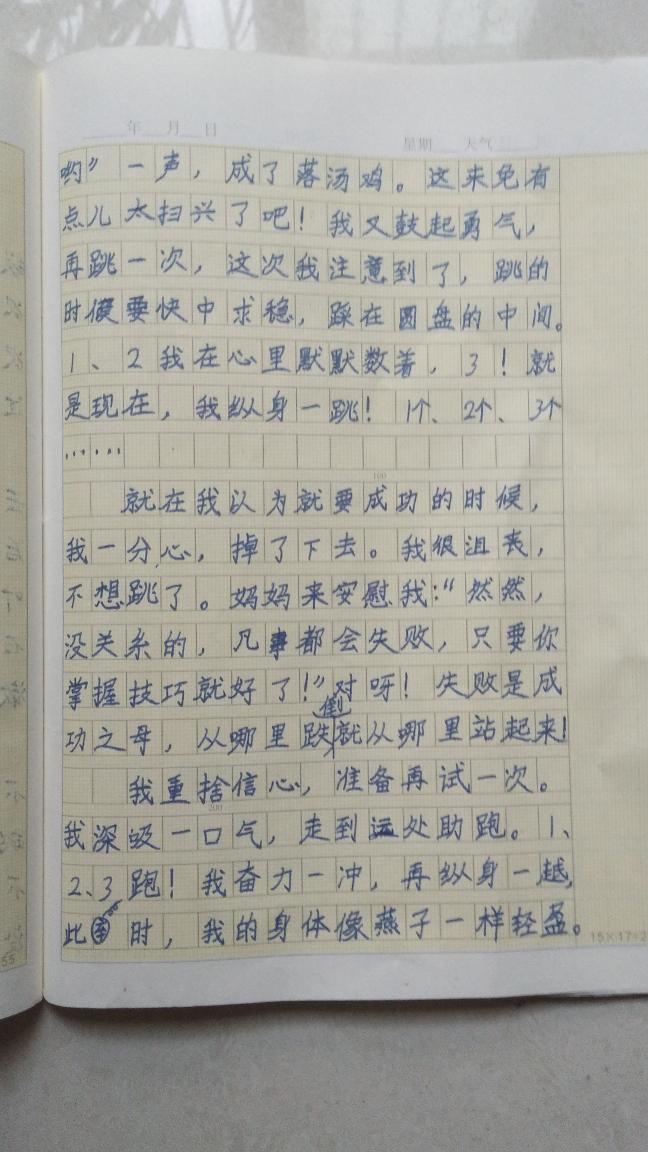 年 月 日
星期 天气
哟”一声，成了落汤鸡。这来免有
点儿太扫兴了吧！我又鼓起勇气，
再跳一次，这次我注意到了，跳的
时候要快中求稳，踩在圆盘的中间。
1、2我在心里默默数着，3！就
是现在，我纵身一跳！1个、2个、3个
……
100
就在我以为就要成功的时候，
我一分心，掉了下去。我很沮丧，
不想跳了。妈妈来安慰我：“然然，
没关系的，凡事都会失败，只要你
掌握技巧就好了！”对呀！失败是成
功之母，从哪里跌倒就从哪里站起来！
我重捨信心，准备再试一次。
200
我深级一口气，走到远处助跑。1、
2、3跑！我奋力一冲，再纵身一越，
此时，我的身体像燕子一样轻盈。
15×17=2
55